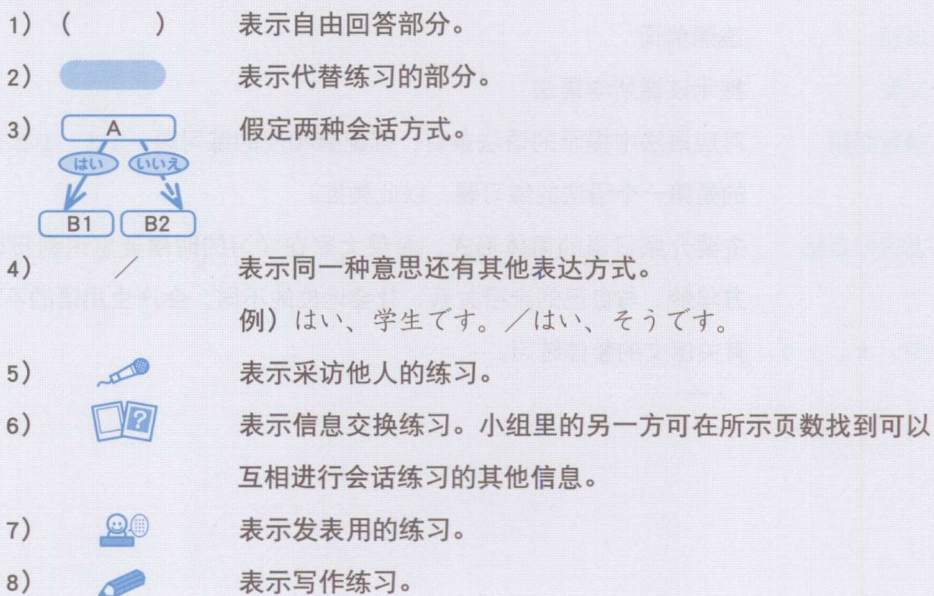 1) (　　　) 表示自由回答部分。
2) 表示代替练习的部分。
3) A 假定两种会话方式。
はい いいえ
B1 B2
4) ／ 表示同一种意思还有其他表达方式。
例) はい、学生です。／はい、そうです。
5) 表示采访他人的练习。
6) ? 表示信息交换练习。小组里的另一方可在所示页数找到可以
互相进行会话练习的其他信息。
7) 表示发表用的练习。
8) 表示写作练习。